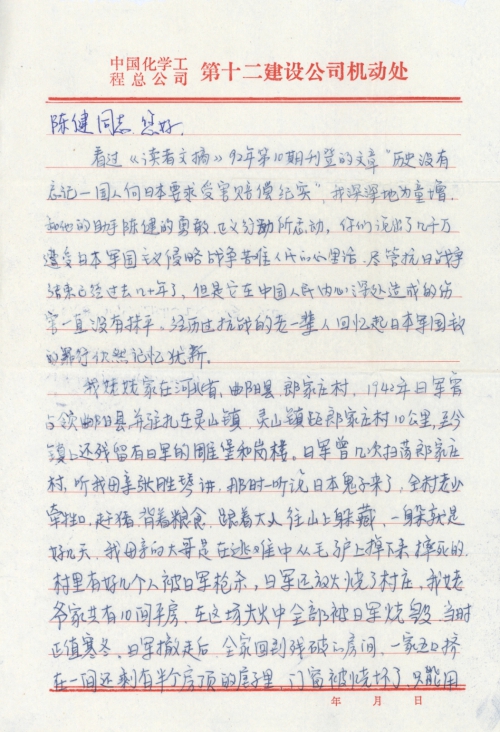 中国化学工
程总公司 第十二建设公司机动处
陈健同志 您好.
看过《读者文摘》92年第10期刊登的文章"历史没有
忘记—国人向日本要求受害赔偿纪实", 我深深地为童增
和他的助手陈健的勇敢.正义行动所感动, 你们说出了几十万
遭受日本军国主义侵略战争苦难人民的心里话. 尽管抗日战争
结束已经过去几十年了, 但是它在中国人民内心深处造成的伤
害一直没有抹平. 经历过抗战的老一辈人回忆起日本军国主义
的罪行仍然记忆犹新.
我姥姥家在河北省.曲阳县.郎家庄村, 1942年日军
占领曲阳县并驻扎在灵山镇 灵山镇距郎家庄村10公里,至今
镇上还残留有日军的雕堡和岗楼. 日军曾几次扫荡郎家庄
村, 听我母亲张胜琴讲, 那时一听说日本鬼子来了, 全村老少
牵牲口, 赶猪, 背着粮食, 跟着大人往山上躲藏, 一躲就是
好几天, 我母亲的大哥是在逃难中从毛驴上掉下来摔死的.
村里有好几个人被日军枪杀, 日军还放火烧了村庄, 我姥
爷家共有10间平房. 在这场大火中全部被日军烧毁. 当时
正值寒冬. 日军撤走后, 全家回到残破的房间, 一家五口挤
在一间还剩有半个房顶的屋子里, 门窗被烧坏了, 只能用
年 月 日